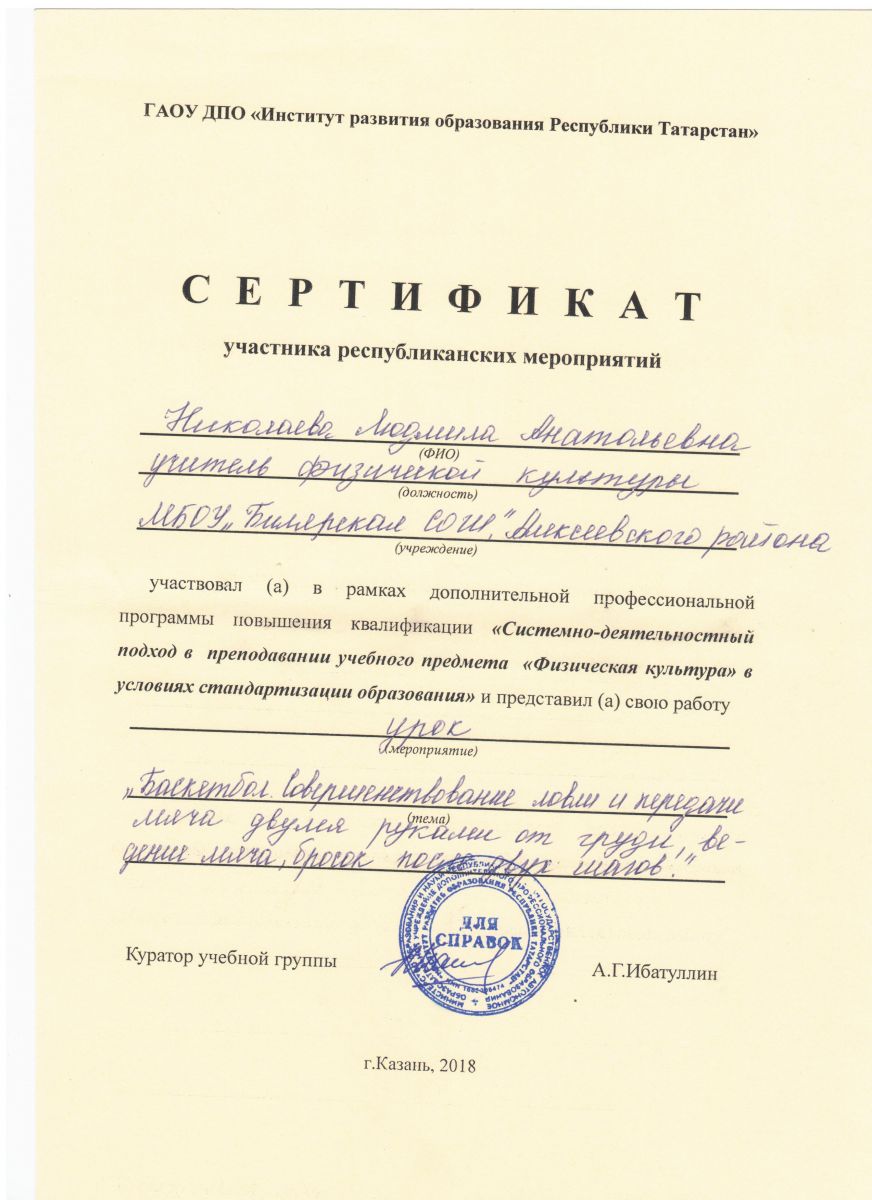 ГАОУ ДПО «Институт развития образования Республики Татарстан»
СЕРТИФИКАТ
участника республиканских мероприятий
Николаева Людмила Анатольевна
(ФИО)
учитель физической культуры
(должность)
МБОУ „Билярская СОШ", Алексеевского района
(учреждение)
участвовал (а) в рамках дополнительной профессиональной
программы повышения квалификации «Системно-деятельностный
подход в преподавании учебного предмета «Физическая культура» в
условиях стандартизации образования» и представил (а) свою работу
урок
(мероприятие)
„Баскетбол. Совершенствование ловли и передачи
(тема)
мяча двумя руками от груди, ве-
дение мяча, бросок после двух шагов."
ДЛЯ
СПРАВОК
Куратор учебной группы
А.Г.Ибатуллин
г.Казань, 2018